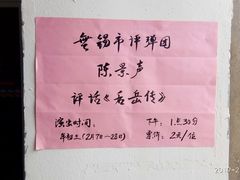 無锡市评弹团
陈景声
评话《后岳传》
演出时间： 下午：1点30分
年初三(2月7日-28日) 票价：2元/位
2018-2